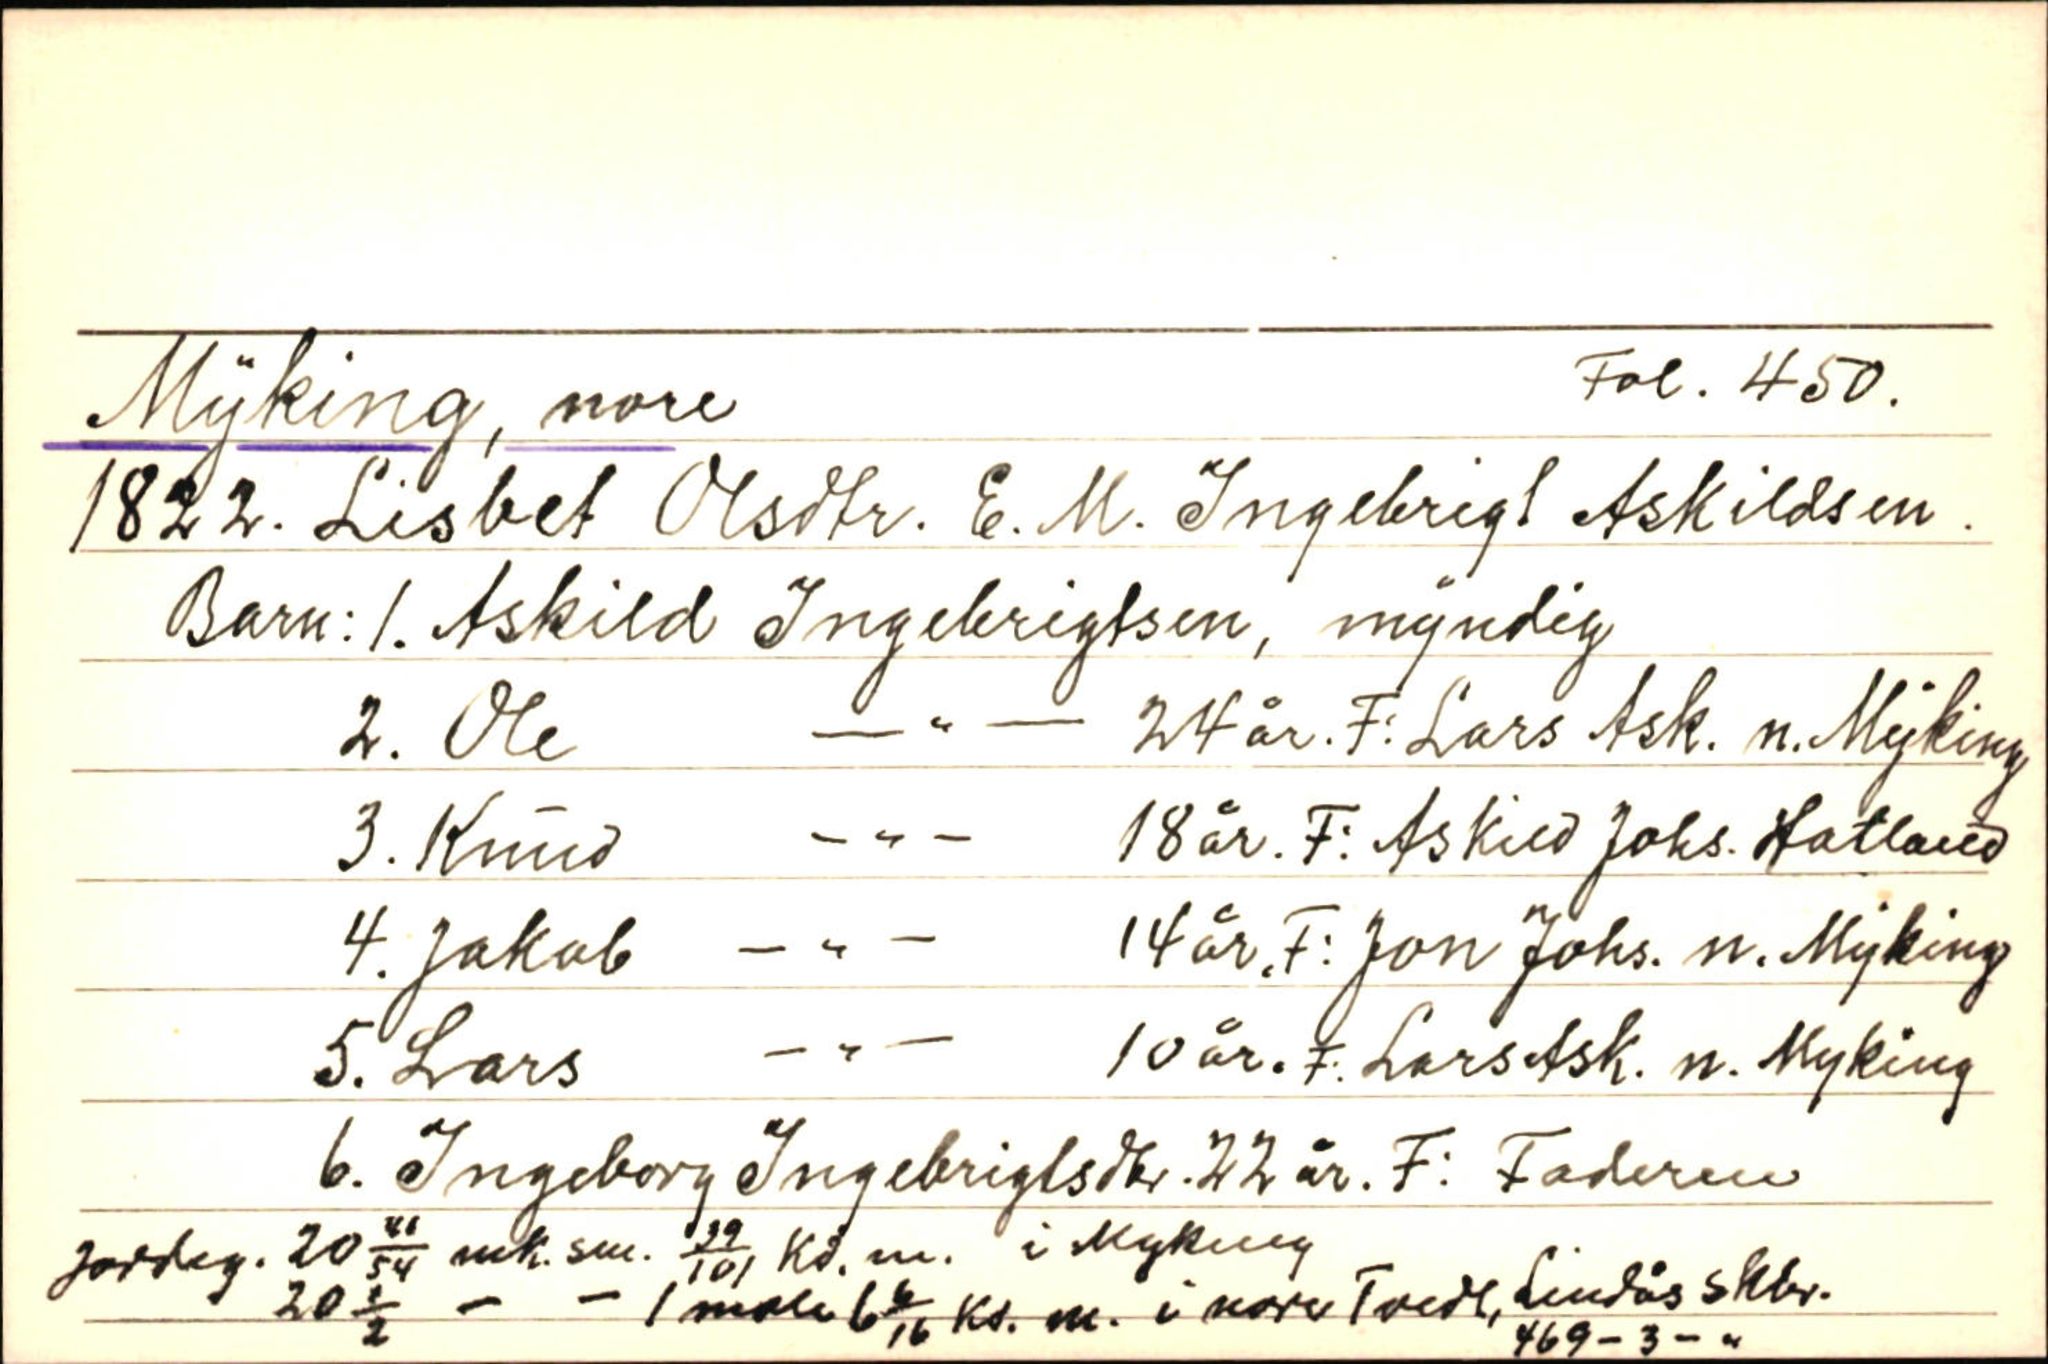 Mÿking, nore Fol. 450.
1822. Lisbet Olsdtr. E. M. Ingebrigt Askildsen.
Barn: 1. Askild Ingebrigtsen, mÿndig
2. Ole —"— 24 år. F: Lars Ask. n. Mÿking
3. Knud —"— 18 år. F: Askild Johs. Hatland
4. Jakob —"— 14 år. F: Jon Johs. n. Mÿking
5. Lars —"— 10 år. F: Lars Ask. n. Myking
6. Ingeborg Ingebrigtsdtr. 22 år. F: Faderen
Jordeg. 20 41/54 mk. sm. 39/101 Ks. m. i Myking
20 1/2 — — 1 male 6 6/16 Ks. m. i nore Tvedt, Lindås skbr.
469 - 3 - "